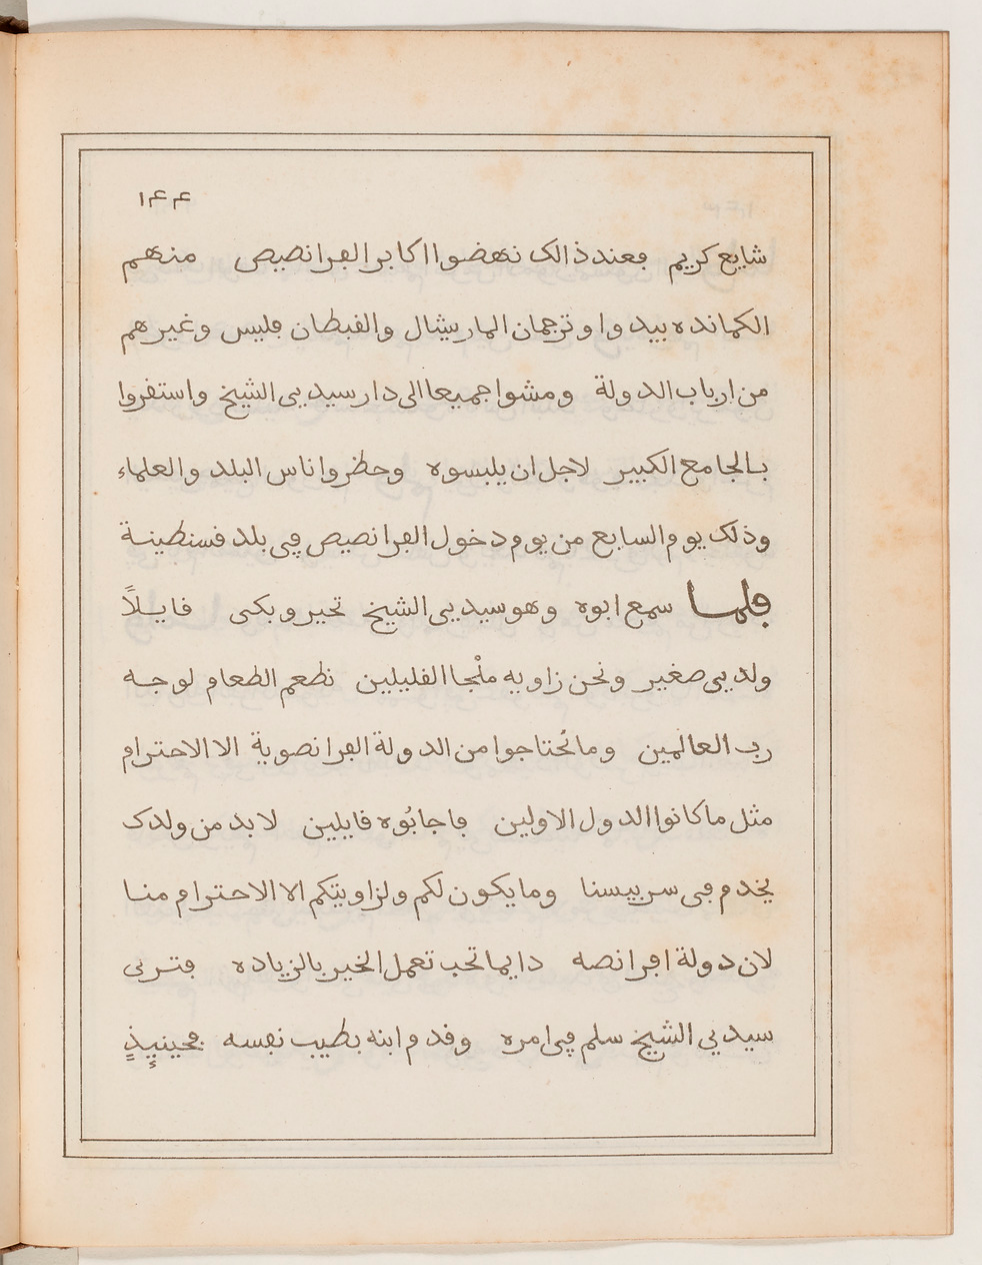 ١٤٤
شايع كريم فعند ذالك نهضوا اكابر الفرانصيص منهم
الكمانده بيدوا وترجمان الماريشال والقبطان فليس وغيرهم
من ارباب الدولة ومشوا جميعا الى دار سيدي الشيخ واستقروا
بالجامع الكبير لاجل ان يلبسوه وحظروا ناس البلد والعلماء
وذلك يوم السابع من يوم دخول الفرانصيص في بلد قسنطينة
فلما سمع ابوه وهو سيدي الشيخ تحير وبكى قايلاً
ولدي صغير ونحن زاويه ملْجا القليلين نطعم الطعام لوجه
رب العالمين وما نُحتاجوا من الدولة الفرانصوية الا الاحترام
مثل ما كانوا الدول الاولين فاجابُوه قايلين لابد من ولدك
يخدم في سربيسنا وما يكون لكم ولزاويتكم الا الاحترام منا
لان دولة افرانصه دايما تحب تعمل الخير بالزياده فترى
سيدي الشيخ سلم في امره وقدم ابنه بطيب نفسه فحينيٕذٍ